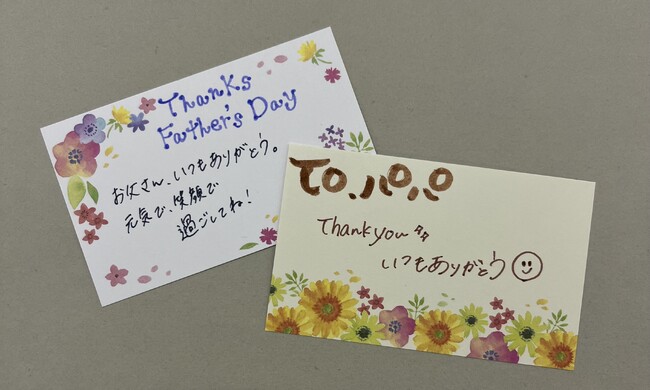 Thanks
Father's Day
お父さん、いつもありがとう。
元気で、笑顔で
過ごしてね!
To.パパ
Thank you
いつもありがとう